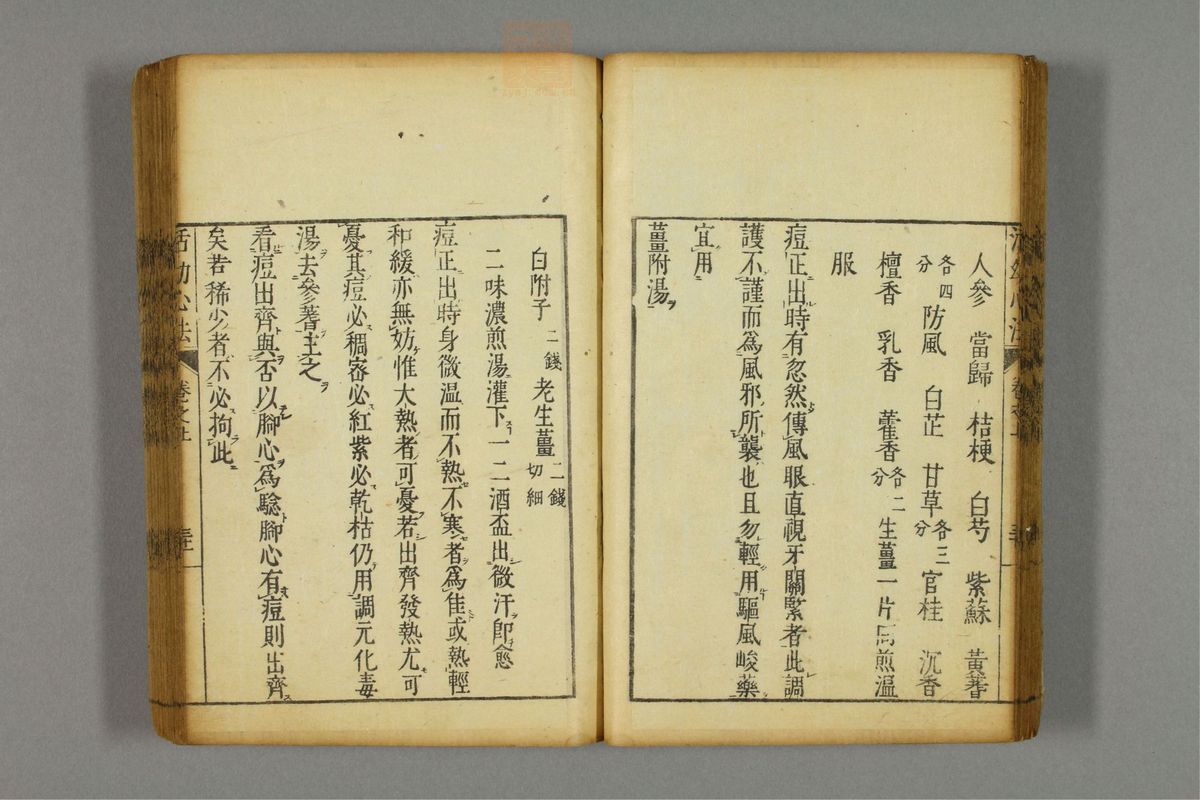 人參　當歸　桔梗　白芍　紫蘇　黃蓍
各四分　防風　白芷　甘草各三分　官桂　沉香
檀香　乳香　藿香各二分　生薑一片同煎溫
服
痘正出時有忽然傳風眼直視牙關緊者此調
護不謹而為風邪所襲也且勿輕用驅風峻藥
宜用
薑附湯
白附子二錢　老生薑二錢切細
二味濃煎湯灌下一二酒盃出微汗即愈
痘正出時身微溫而不熱不寒者為佳或熱輕
和緩亦無妨惟大熱者可憂若出齊發熱尤可
憂其痘必稠密必紅紫必乾枯仍用調元化毒
湯去參蓍主之
看痘出齊與否以腳心為驗腳心有痘則出齊
矣若稀少者不必拘此
活幼心法　卷之上